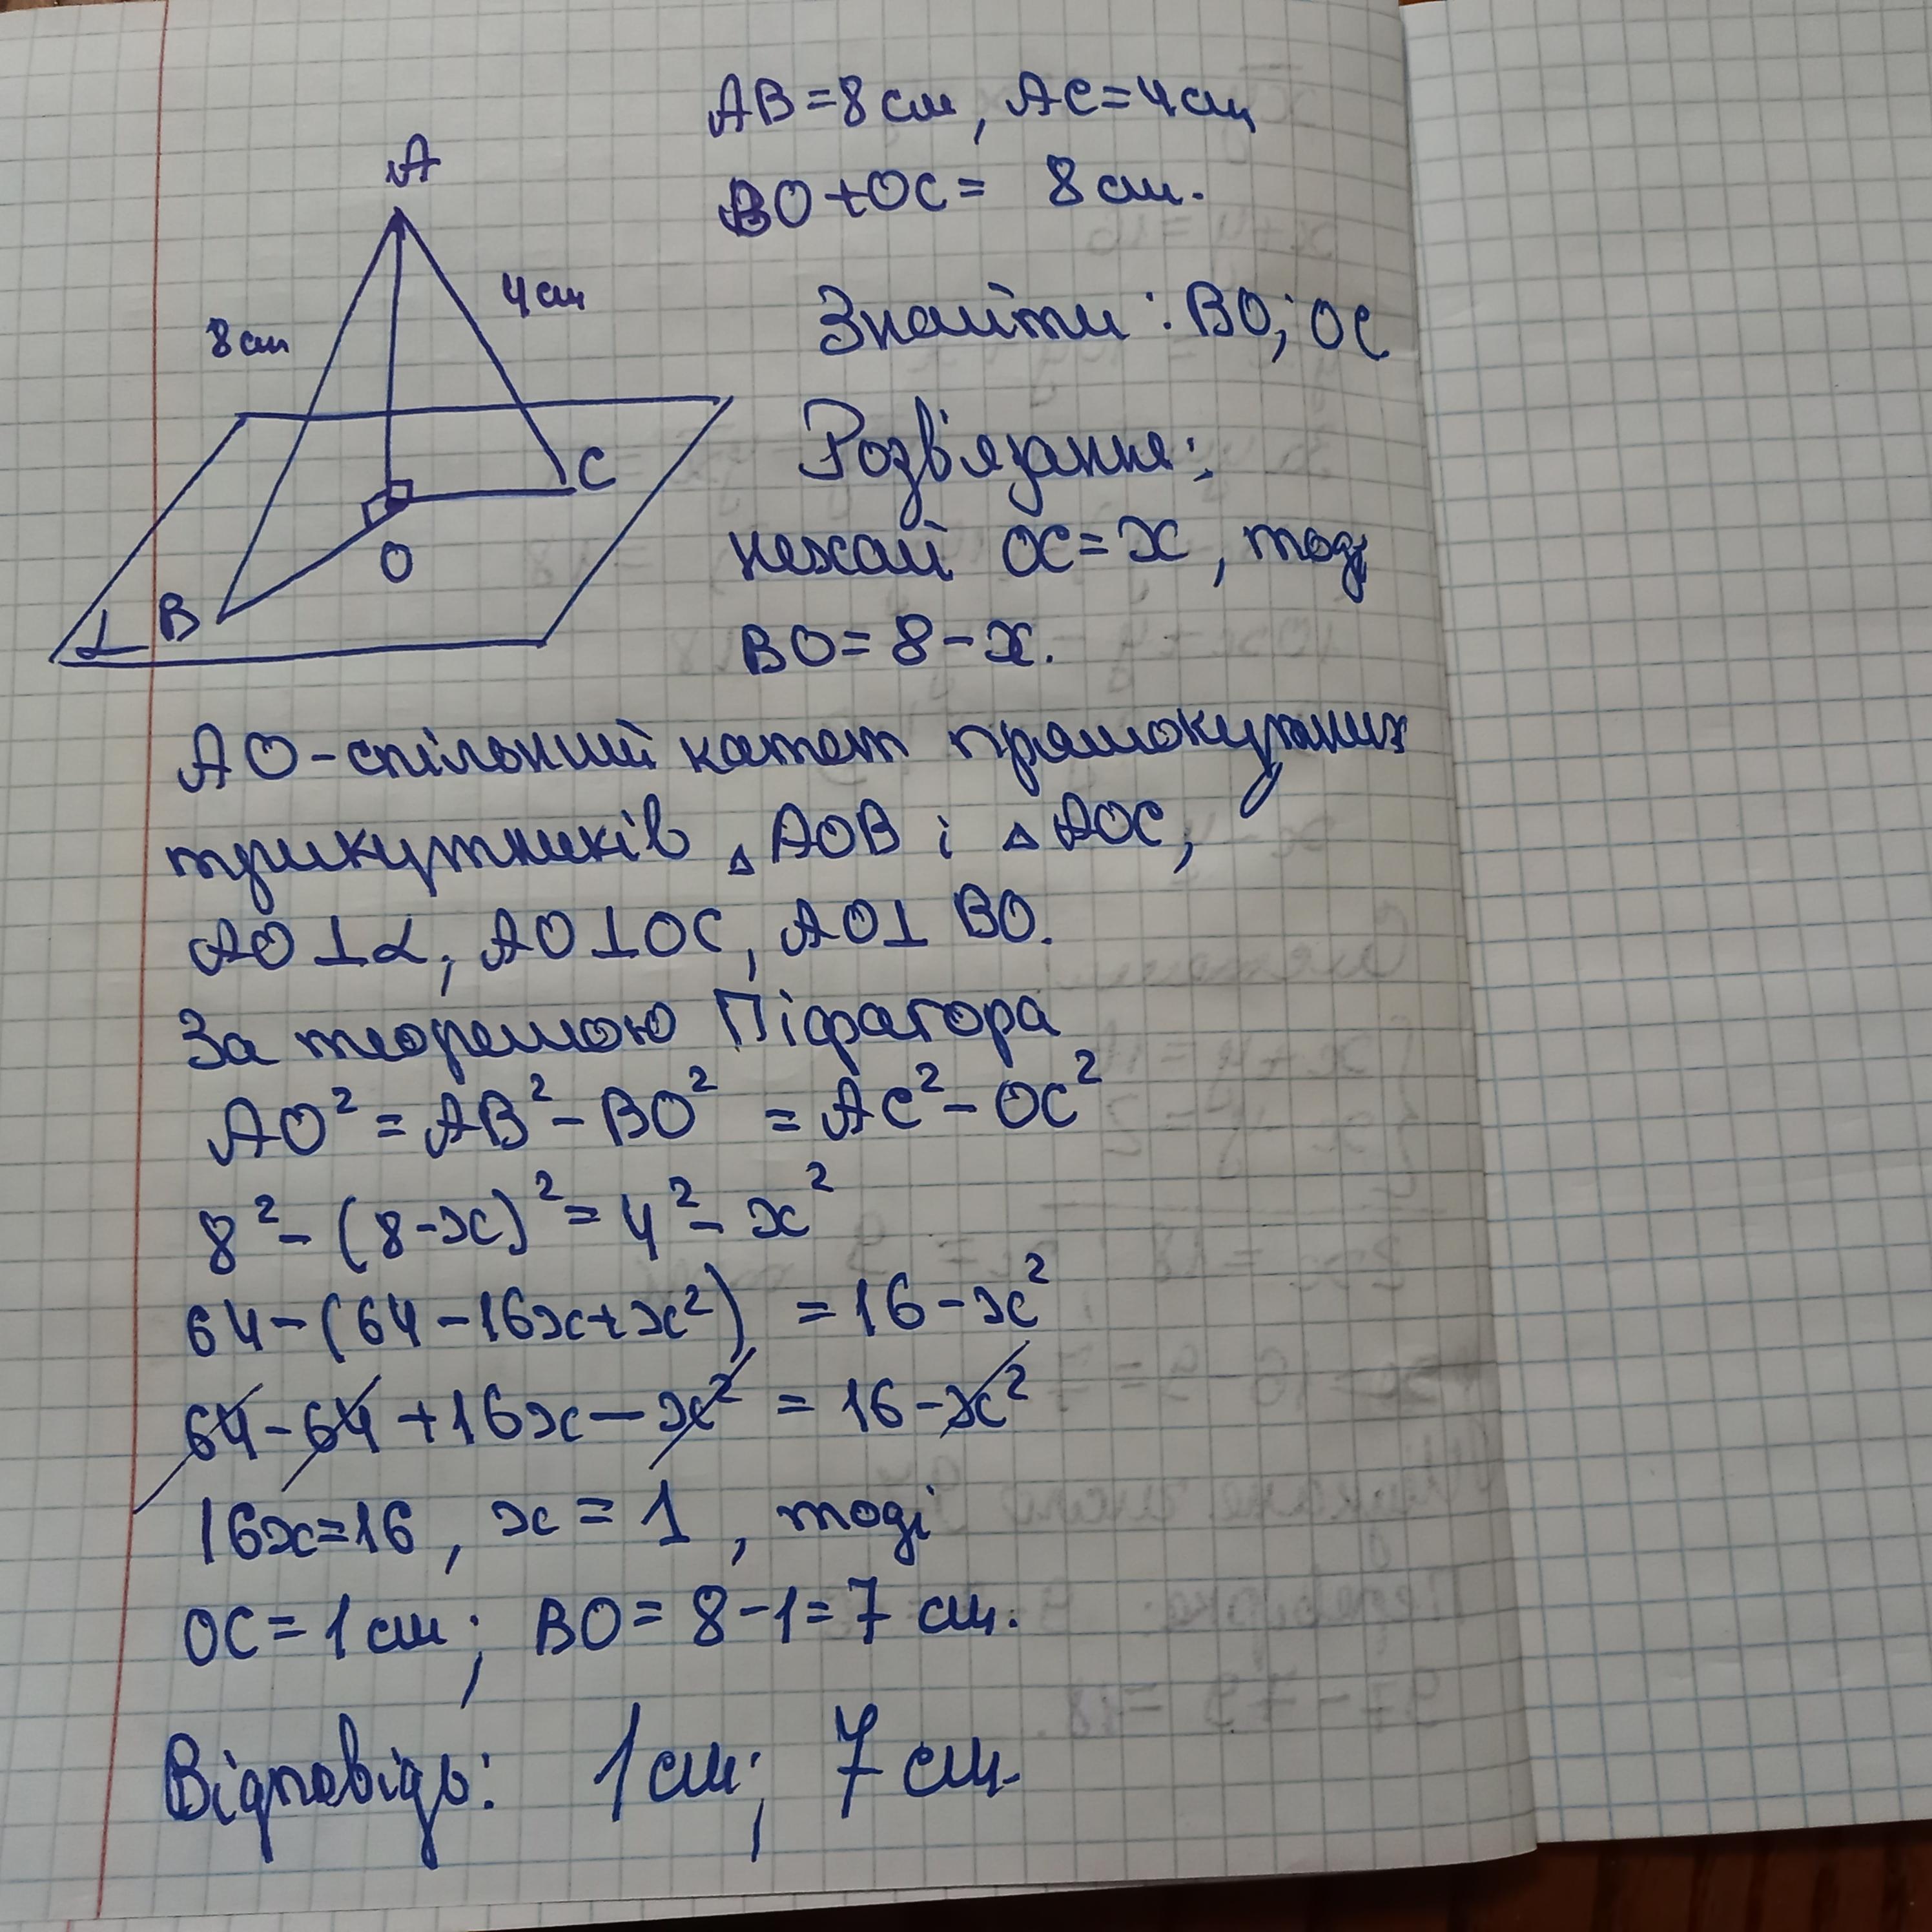 AB=8см, AC=4см
BO+OC= 8см.
Знайти: BO; OC
Розв'язання:
нехай OC=x, тоді
BO=8-x.
A
8см
4см
C
O
B
α
AO-спільний катет прямокутних
трикутників △AOB і △AOC,
AO⊥α, AO⊥OC, AO⊥BO.
За теоремою Піфагора
AO²=AB²-BO²=AC²-OC²
8²-(8-x)²=4²-x²
64-(64-16x+x²)=16-x²
64-64+16x-x²=16-x²
16x=16, x=1, тоді
OC=1см; BO=8-1=7 см.
Відповідь: 1см; 7см.